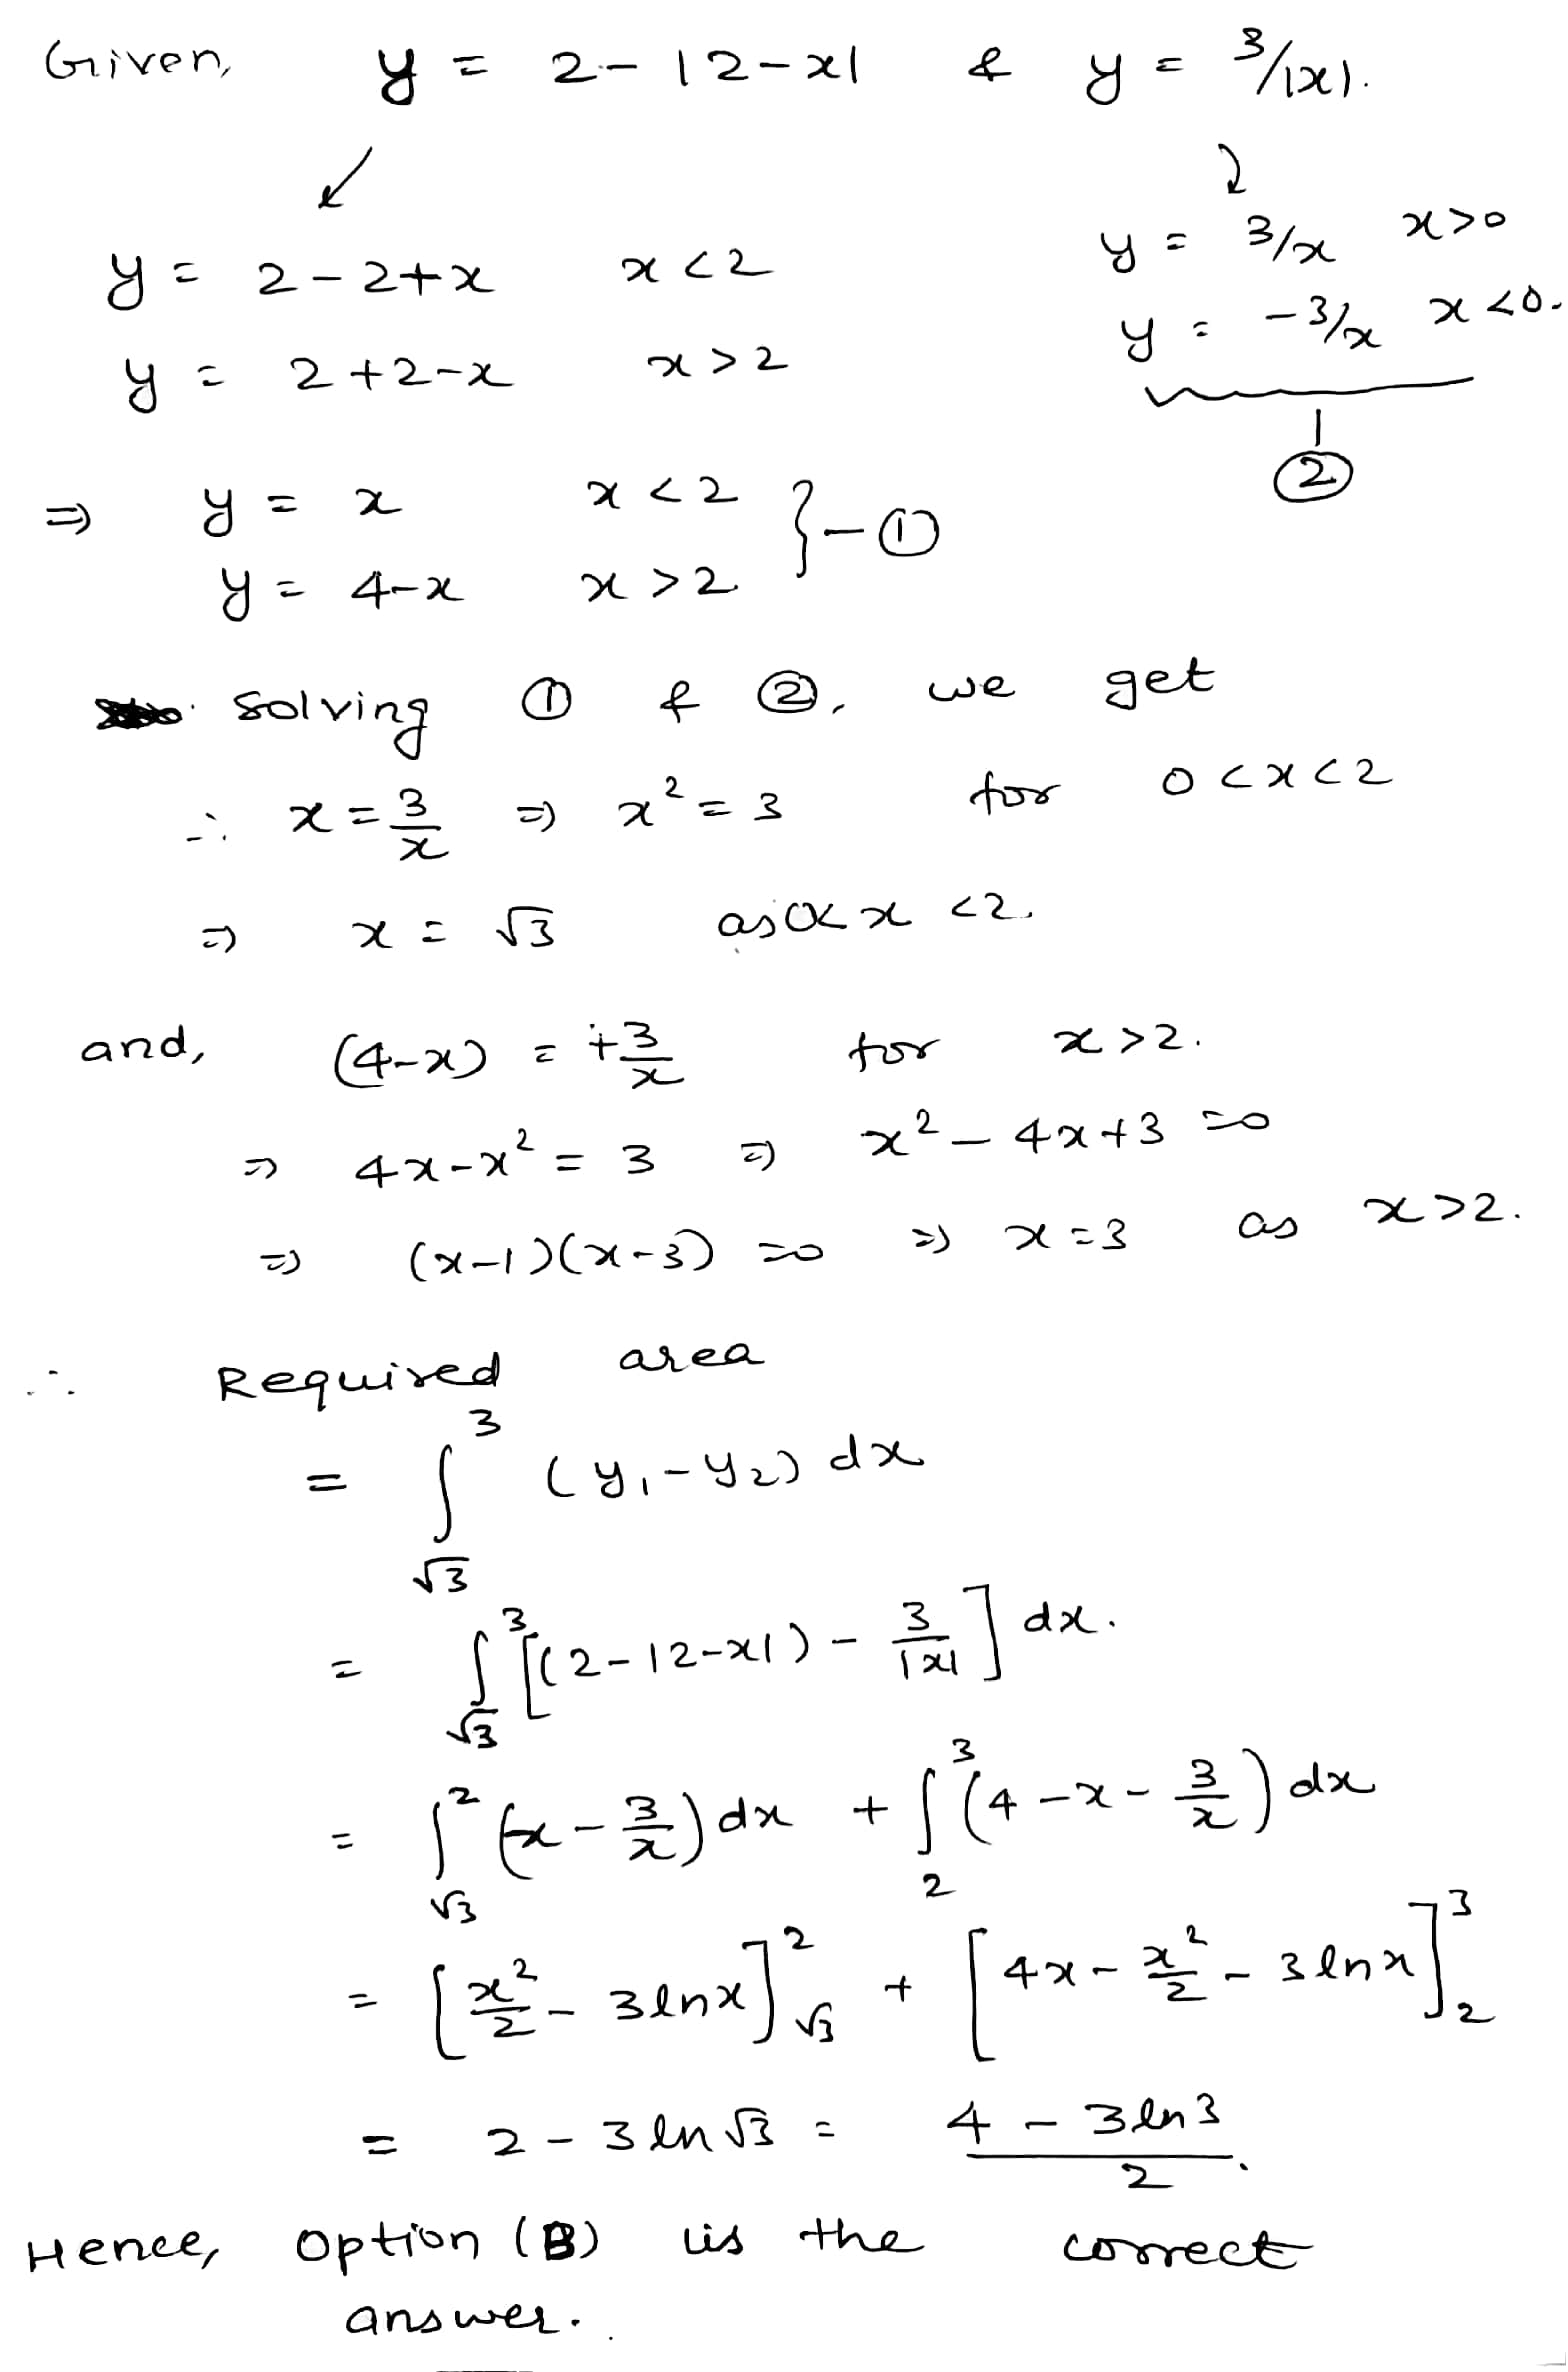 Given, y = 2 - |2-x| & y = 3/|x|.
y = 2-2+x x<2 y = 3/x x>0
y = 2+2-x x>2 y = -3/x x<0.
②
⇒ y = x x<2
y = 4-x x>2 } - ①
solving ① & ②, we get
∴ x = 3/x ⇒ x² = 3 for 0<x<2
⇒ x = √3 as 0<x<2.
and, (4-x) = +3/x for x>2.
⇒ 4x-x² = 3 ⇒ x²-4x+3 =0
⇒ (x-1)(x-3) =0 ⇒ x=3 as x>2.
∴ Required area
= ∫_{√3}^{3} (y₁-y₂) dx
= ∫_{√3}^{3} [(2-|2-x|) - 3/|x|] dx.
= ∫_{√3}^{2} (x - 3/x) dx + ∫_{2}^{3} (4-x-3/x) dx
= [x²/2 - 3lnx]_{√3}^{2} + [4x - x²/2 - 3lnx]_{2}^{3}
= 2 - 3 ln√3 = (4 - 3ln3)/2.
Hence, option (B) is the correct
answer.